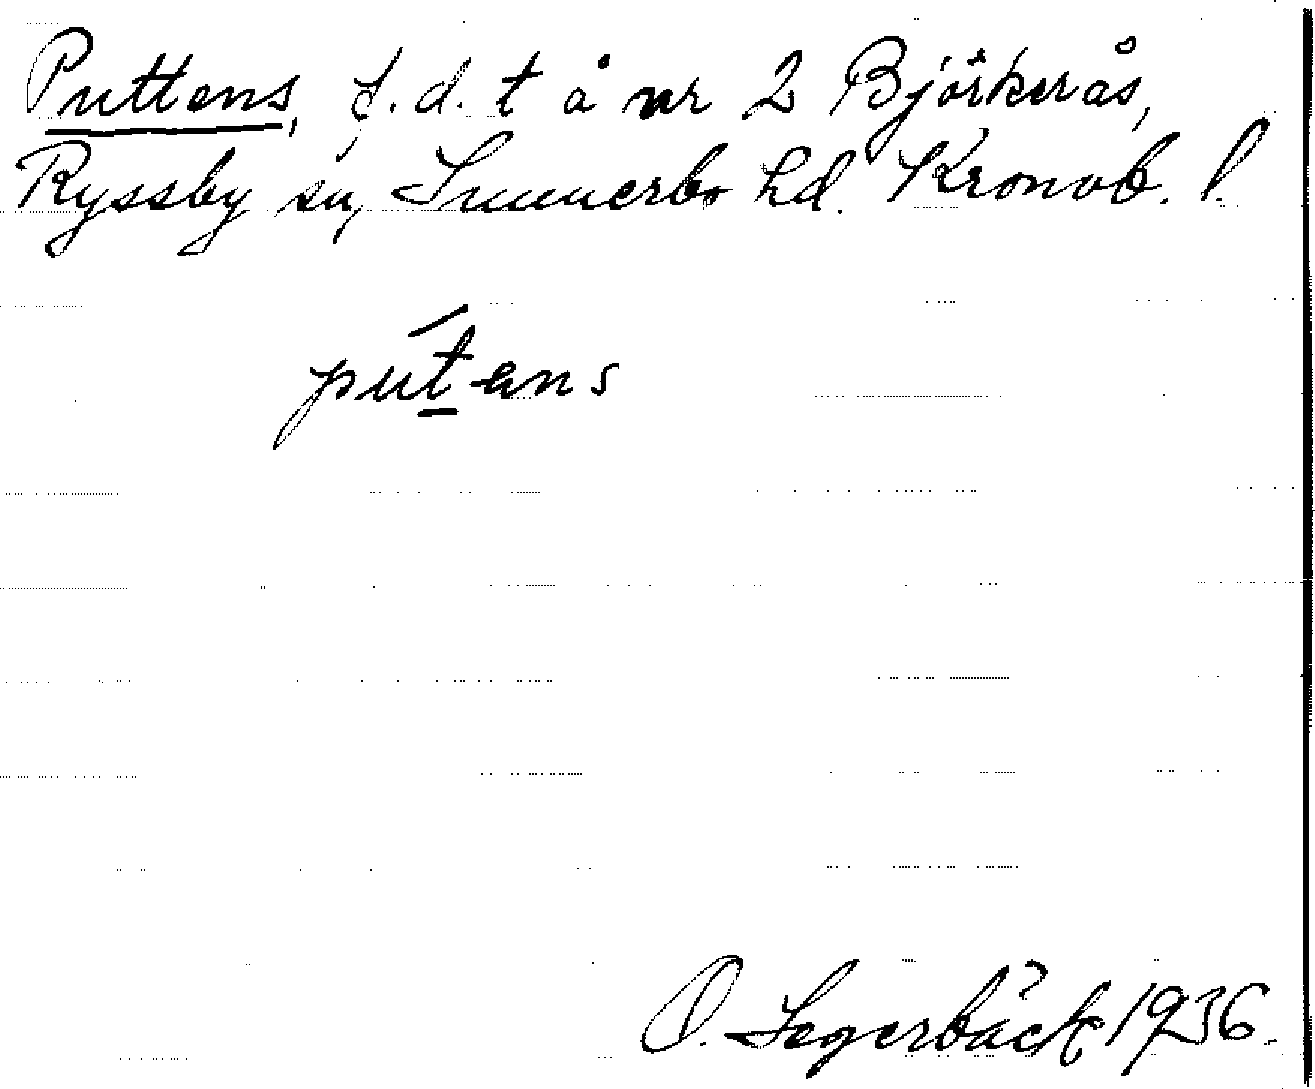 Puttens, f. d. t å nr 2 Björkerås,
Ryssby sn, Sunnerbo hd. Kronob. l.
put́ens
O. Segerbäck 1936.